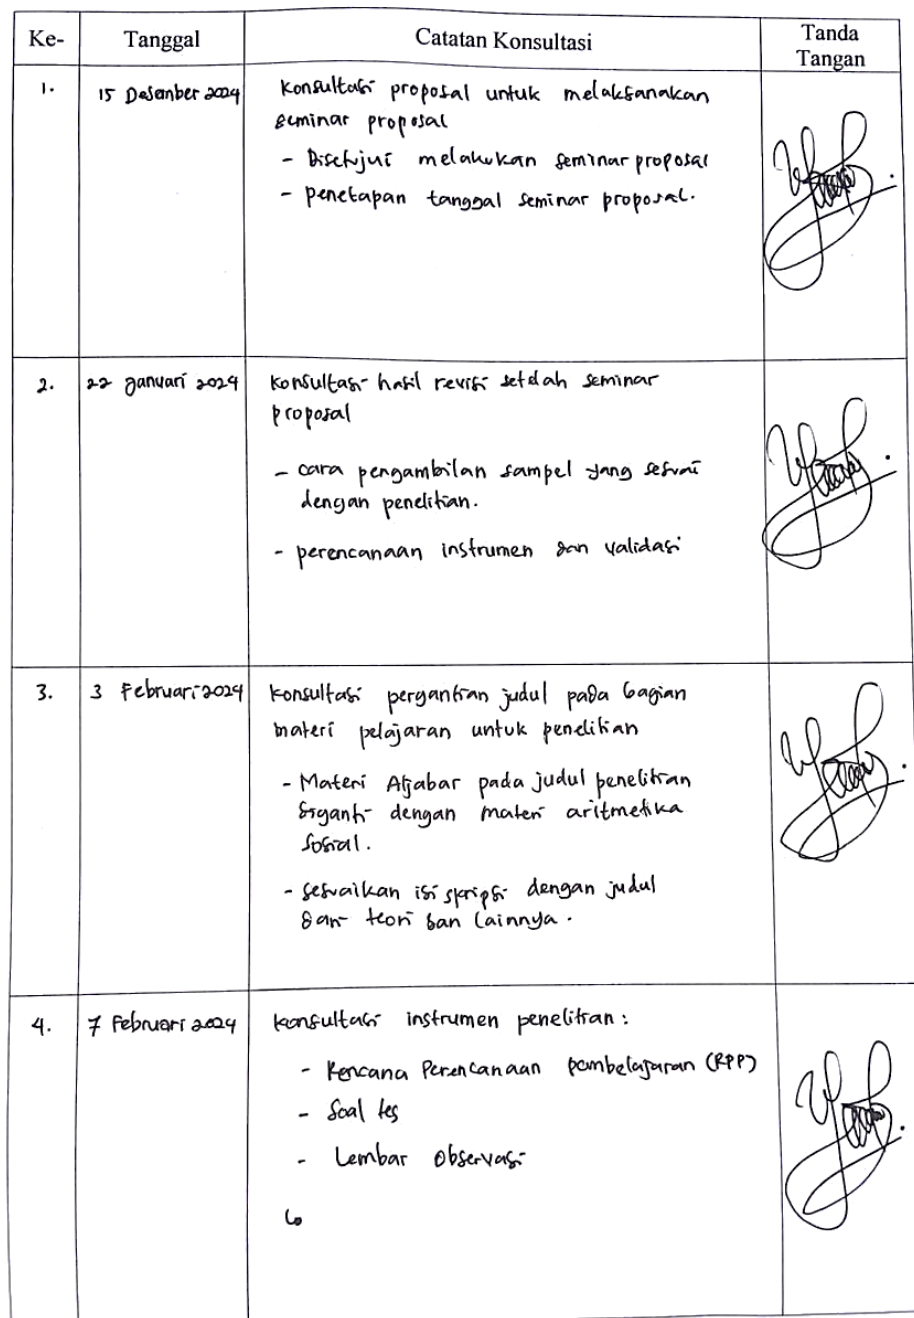 Ke- Tanggal Catatan Konsultasi Tanda
Tangan
1. 15 Desember 2024 Konsultasi proposal untuk melaksanakan
seminar proposal
- Disetujui melakukan seminar proposal
- penetapan tanggal seminar proposal.
2. 22 Januari 2024 Konsultasi hasil revisi setelah seminar
proposal
- cara pengambilan sampel yang sesuai
dengan penelitian.
- perencanaan instrumen dan validasi
3. 3 Februari 2024 Konsultasi pergantian judul pada bagian
materi pelajaran untuk penelitian
- Materi Aljabar pada judul penelitian
diganti dengan materi aritmetika
sosial.
- sesuaikan isi skripsi dengan judul
dan teori dan lainnya.
4. 7 Februari 2024 Konsultasi instrumen penelitian :
- Rencana Perencanaan pembelajaran (RPP)
- Soal tes
- Lembar Observasi